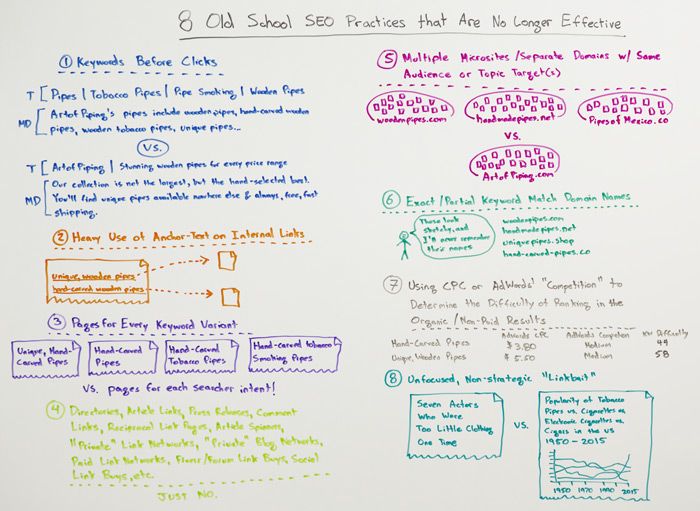 8 Old School SEO Practices that Are No Longer Effective
① Keywords Before Clicks
T [Pipes | Tobacco Pipes | Pipe Smoking | Wooden Pipes
MD [Art of Piping's pipes include wooden pipes, hand-carved wooden
pipes, wooden tobacco pipes, unique pipes...
VS.
T [Art of Piping | Stunning wooden pipes for every price range
MD [Our collection is not the largest, but the hand-selected best.
You'll find unique pipes available nowhere else & always, free, fast
shipping.
② Heavy Use of Anchor-Text on Internal Links
Unique, wooden pipes
hand-carved wooden pipes
③ Pages for Every Keyword Variant
Unique, Hand-
Carved Pipes
Hand-Carved
Pipes
Hand-Carved
Tobacco Pipes
Hand-Carved tobacco
Smoking Pipes
VS. pages for each searcher intent!
④ Directories, Article Links, Press Releases, Comment
Links, Reciprocal Link Pages, Article Spinners,
"Private" Link Networks, "Private" Blog Networks,
Paid Link Networks, Fiverr/Forum Link Buys, Social
Link Buys, etc.
JUST NO.
⑤ Multiple Microsites/Separate Domains w/ Same
Audience or Topic Target(s)
woodenpipes.com
handmadepipes.net
PipesofMexico.co
VS.
ArtofPiping.com
⑥ Exact/Partial Keyword Match Domain Names
These look
sketchy, and
I'll never remember
their names
woodenpipes.com
handmadepipes.net
uniquepipes.shop
hand-carved-pipes.co
⑦ Using CPC or AdWords' "Competition" to
Determine the Difficulty of Ranking in the
Organic/Non-Paid Results
AdWords CPC AdWords Competition KW Difficulty
Hand-Carved Pipes $3.80 Medium 49
Unique, Wooden Pipes $5.50 Medium 58
⑧ Unfocused, Non-strategic "Linkbait"
Seven Actors
Who Wore
Too Little Clothing
One Time
VS.
Popularity of Tobacco
Pipes vs. Cigarettes vs.
Electronic Cigarettes vs.
Cigars in the US
1950-2015
1950 1970 1990 2015